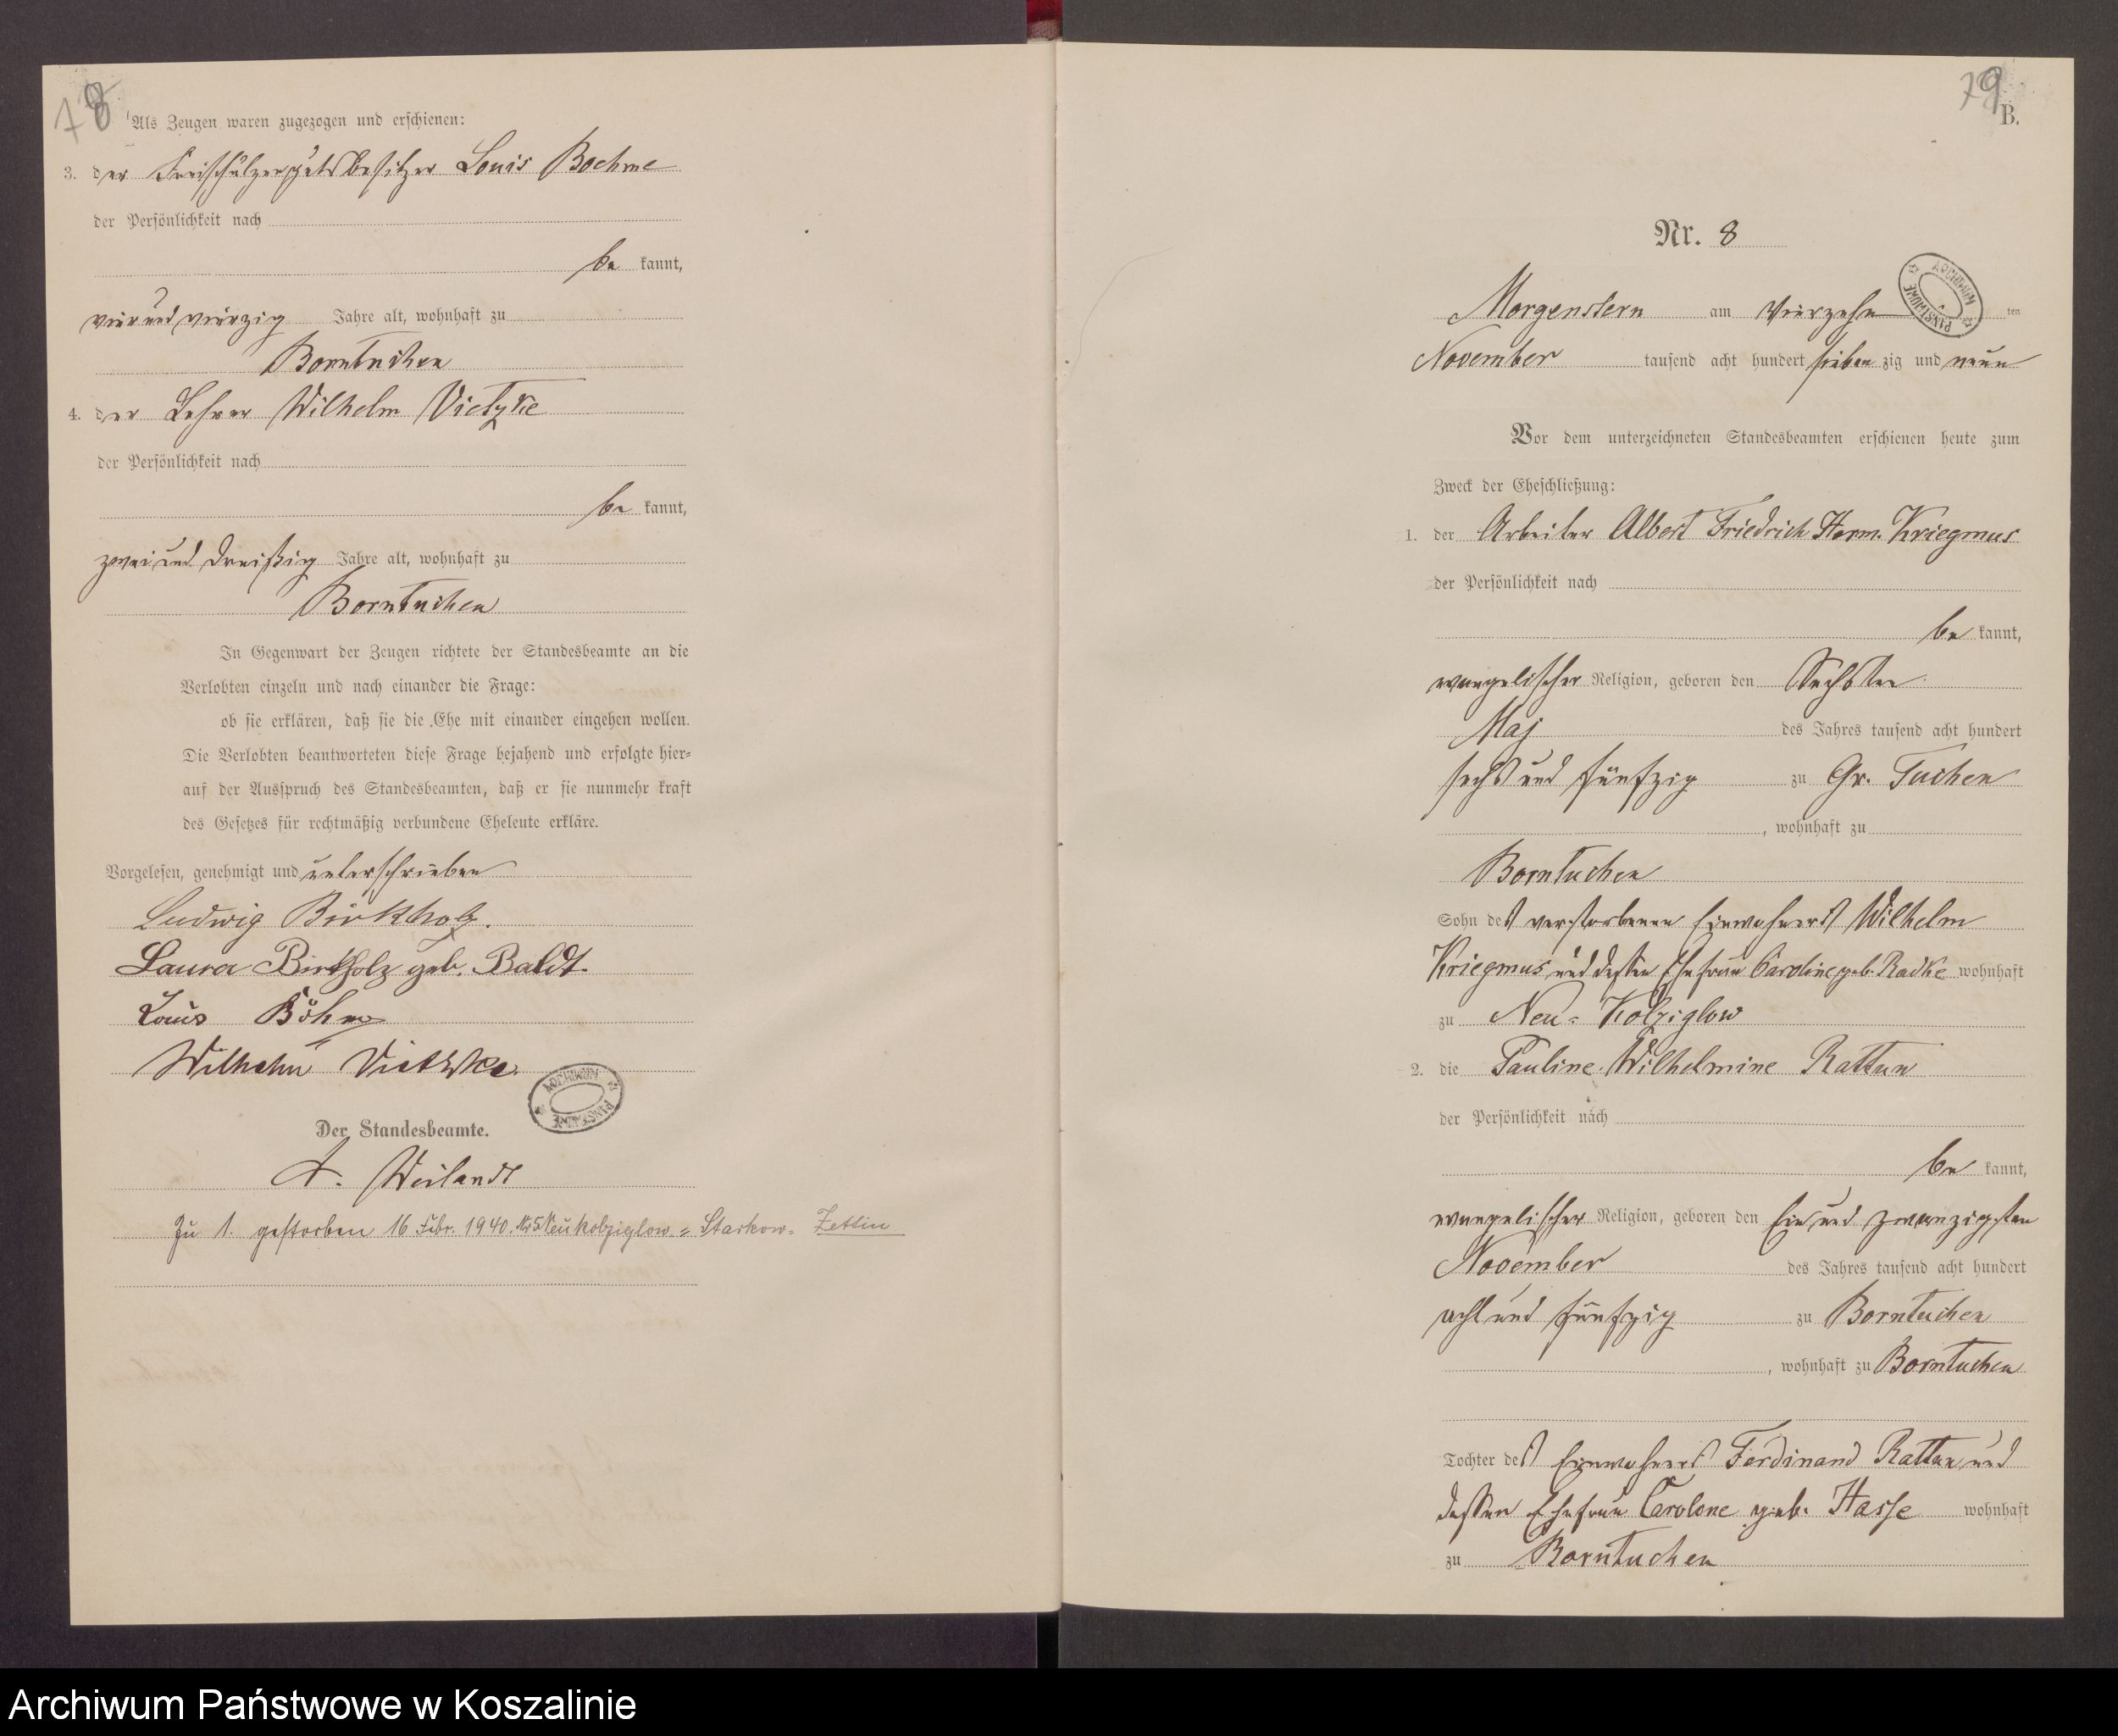 78
Als Zeugen waren zugezogen und erschienen:
3. der Freischulzengutsbesitzer Louis Boehme
der Persönlichkeit nach
be kannt,
vier und vierzig Jahre alt, wohnhaft zu
Borntuchen
4. der Lehrer Wilhelm Vietzke
der Persönlichkeit nach
be kannt,
zwei und dreißig Jahre alt, wohnhaft zu
Borntuchen
In Gegenwart der Zeugen richtete der Standesbeamte an die
Verlobten einzeln und nach einander die Frage:
ob sie erklären, daß sie die Ehe mit einander eingehen wollen.
Die Verlobten beantworteten diese Frage bejahend und erfolgte hier-
auf der Ausspruch des Standesbeamten, daß er sie nunmehr kraft
des Gesetzes für rechtmäßig verbundene Eheleute erkläre.
Vorgelesen, genehmigt und unterschrieben
Ludwig Birkholz.
Laura Birkholz geb. Baldt.
Louis Böhme
Wilhelm Viethke.
ARCHIWUM PAŃSTWOWE
Der Standesbeamte.
A. Weilandt
Zu 1. gestorben 16 Febr. 1940. Nr 5 Neukolziglow = Starkow- Zettin
79
B.
Nr. 8
ARCHIWUM PAŃSTWOWE
Morgenstern am Vierzehn ten
November tausend acht hundert sieben zig und neun
Vor dem unterzeichneten Standesbeamten erschienen heute zum
Zweck der Eheschließung:
1. der Arbeiter Albert Friedrich Herm. Kriegmus
der Persönlichkeit nach
be kannt,
evangelischer Religion, geboren den Sechsten
Maj des Jahres tausend acht hundert
sechs und fünfzig zu Gr. Tuchen
, wohnhaft zu
Borntuchen
Sohn des verstorbenen Einwohners Wilhelm
Kriegmus und dessen Ehefrau Caroline geb. Radke wohnhaft
zu Neu-Kolziglow
2. die Pauline Wilhelmine Rattun
der Persönlichkeit nach
be kannt,
evangelischer Religion, geboren den Ein und zwanzigsten
November des Jahres tausend acht hundert
acht und fünfzig zu Borntuchen
, wohnhaft zu Borntuchen
Tochter des Einwohners Ferdinand Rattun und
dessen Ehefrau Carolone geb. Hasse wohnhaft
zu Borntuchen
Archiwum Państwowe w Koszalinie